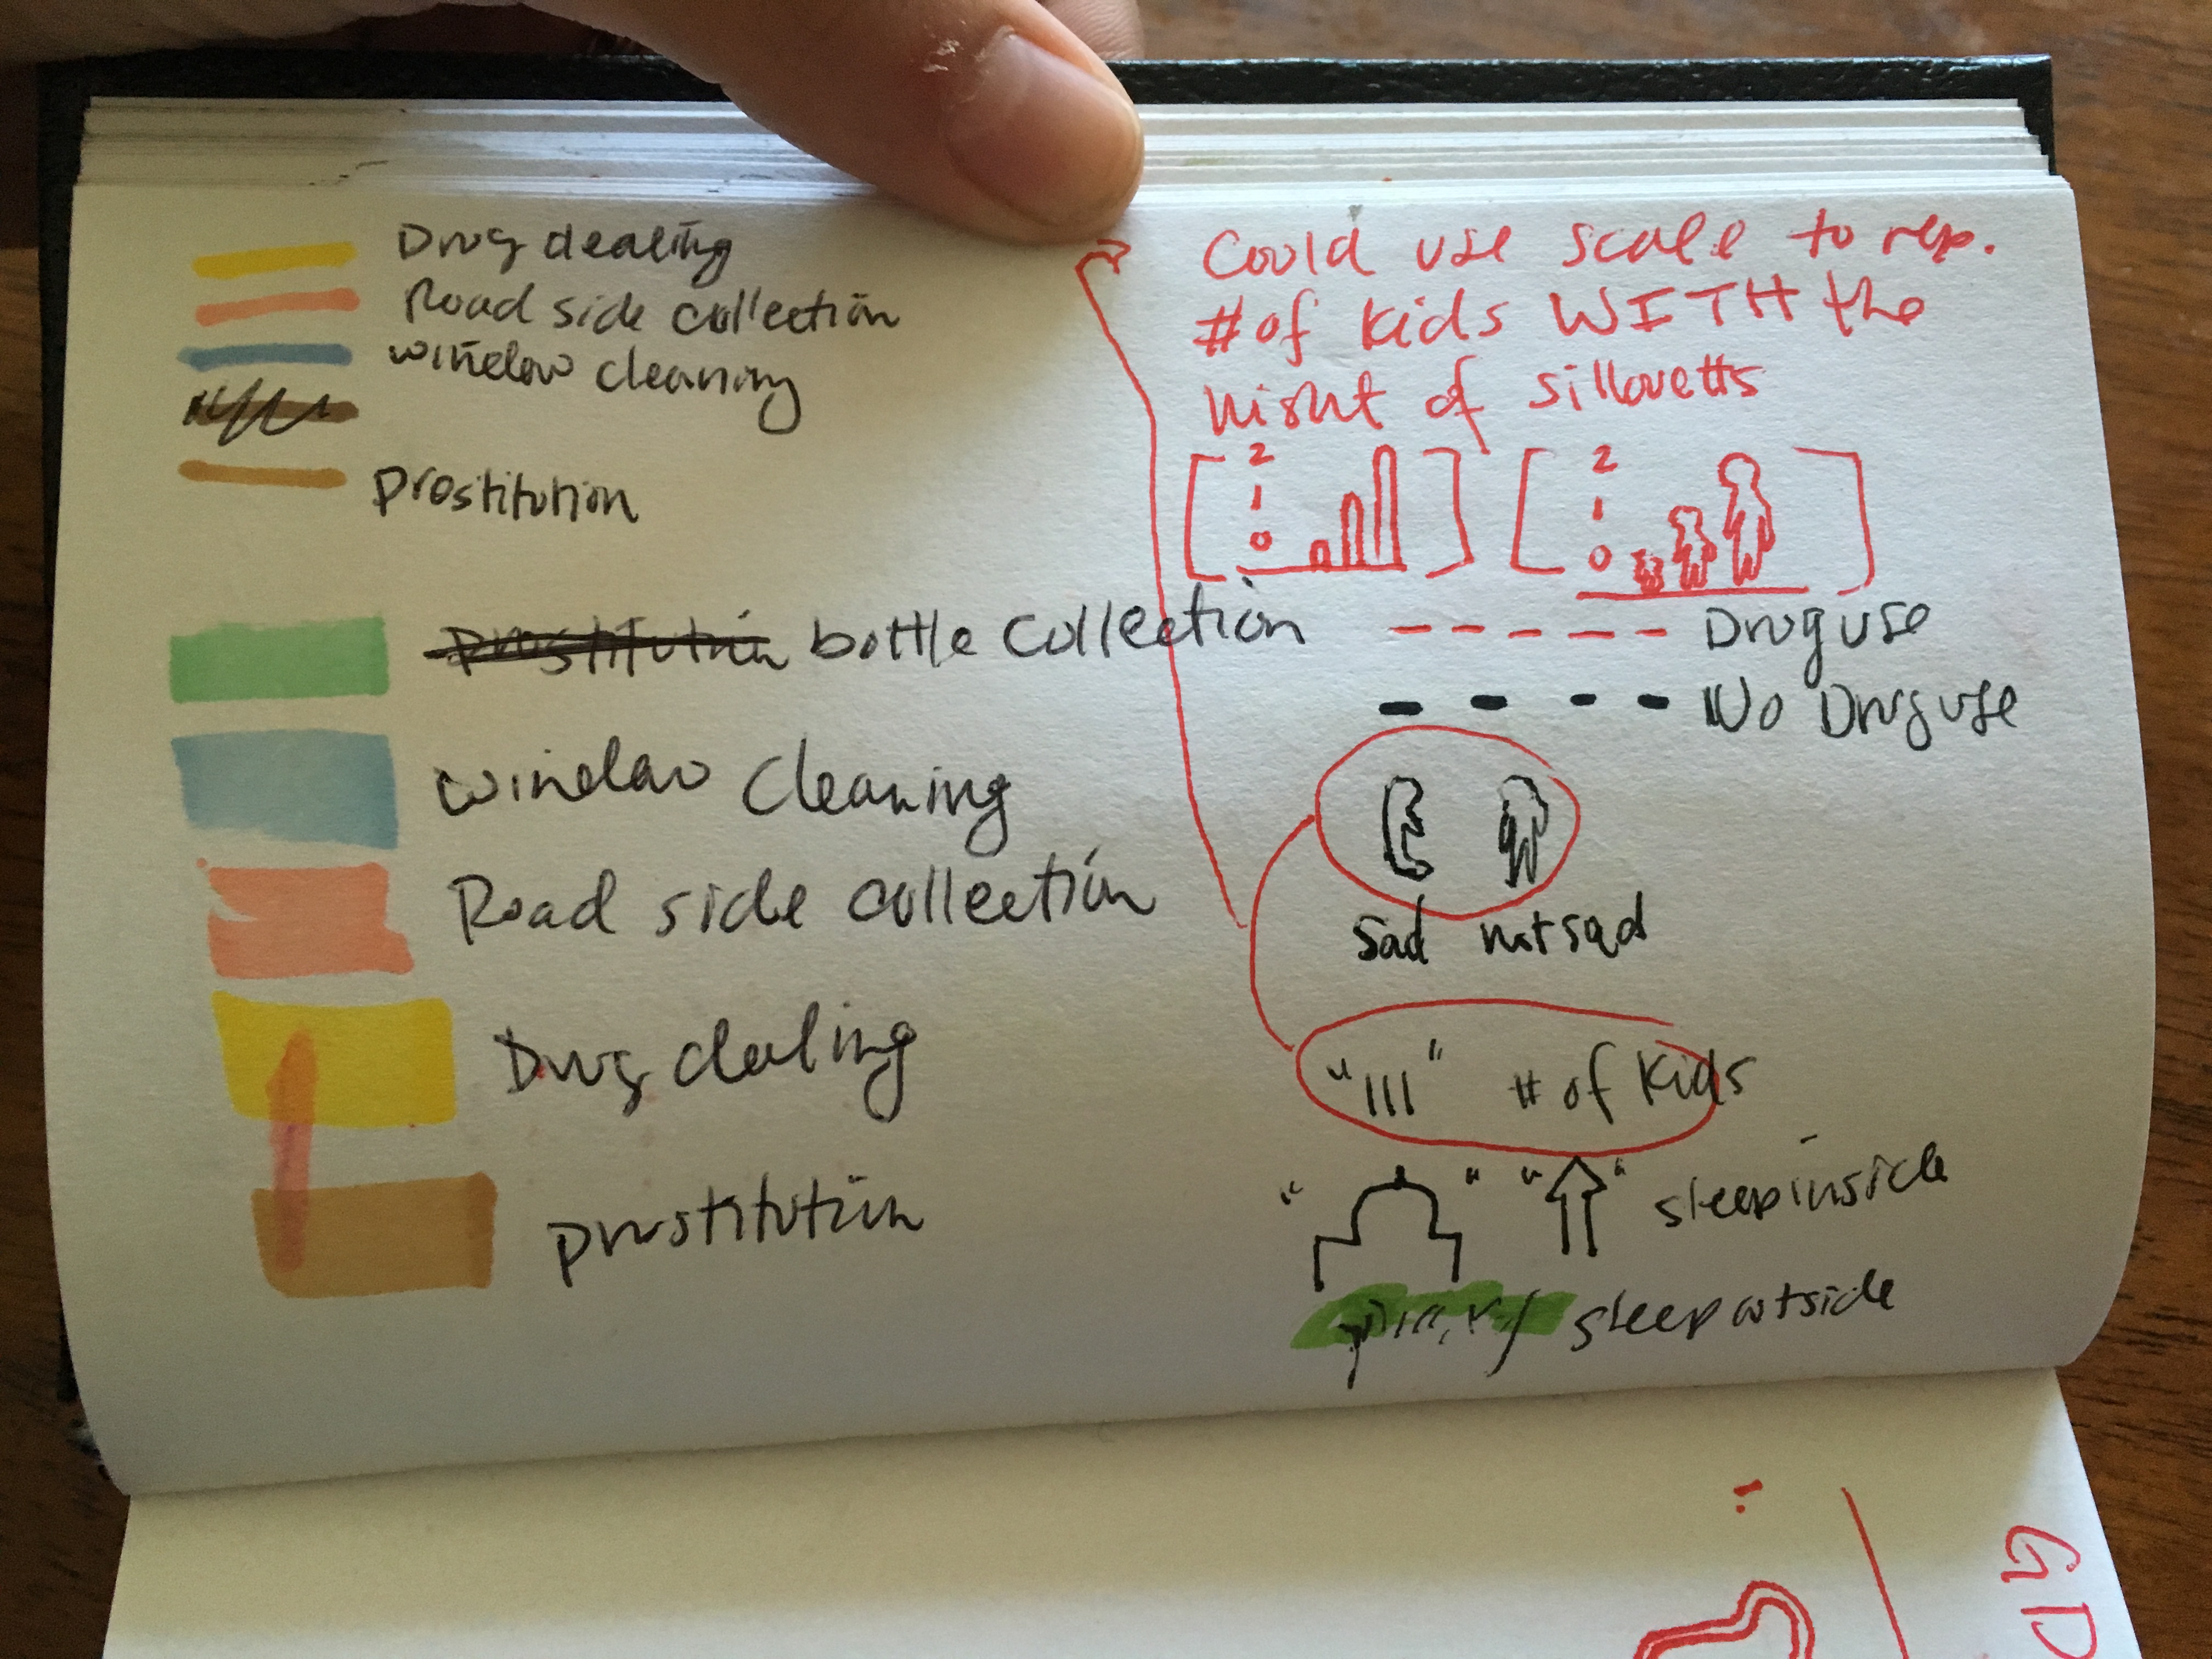 Drug dealing
Road side collection
window cleaning
prostitution
prostitution bottle collection
window cleaning
Road side collection
Drug dealing
prostitution
Could use scale to rep.
# of kids WITH the
hight of sillouetts
2
1
0
2
1
0
Drug use
No Drug use
sad not sad
"III" # of kids
" " " " sleep inside
sleep outside
GD